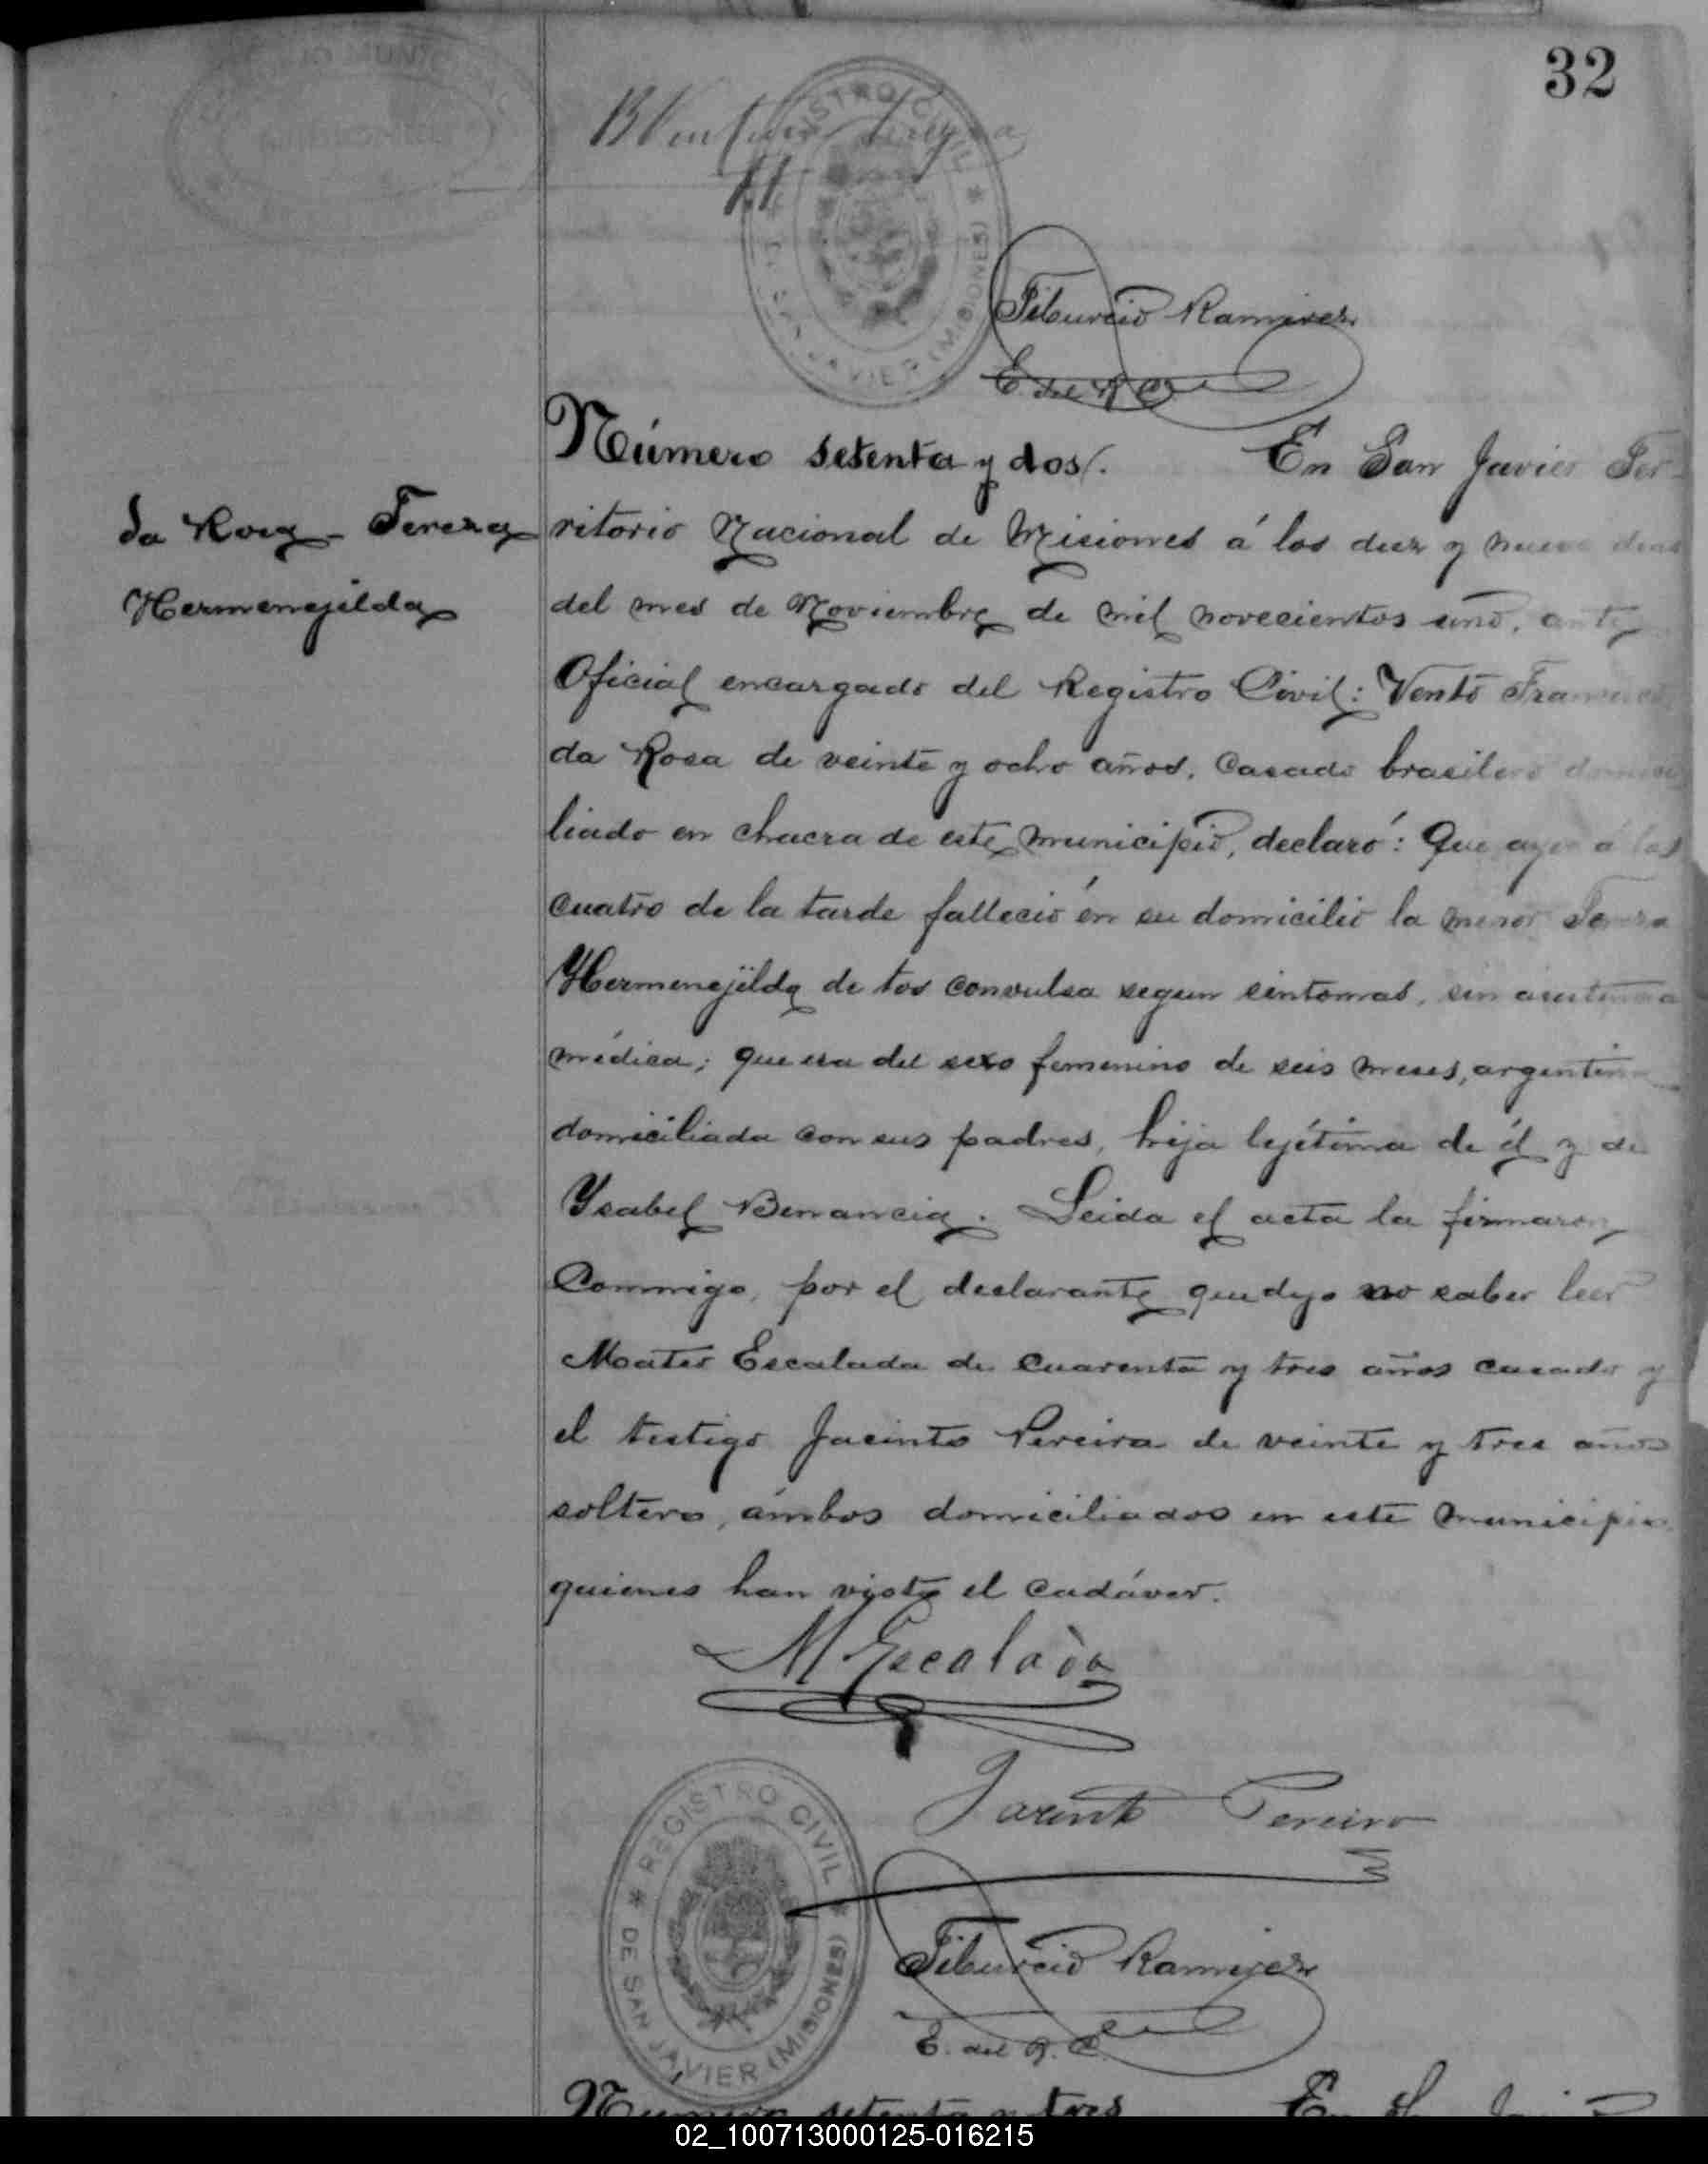 32
REGISTRO CIVIL
DE SAN JAVIER (MISIONES)
Tiburcio Ramirez
E. del R. C.
Número setenta y dos. En San Javier Ter-
da Rosa - Tereza
Hermenejilda
ritorio Nacional de Misiones á los diez y nueve dias
del mes de Noviembre de mil novecientos uno, ante
Oficial encargado del Registro Civil: Vento Francisco
da Rosa de veinte y ocho años, casado brasilero domici
liado en chacra de este municipio, declaró: Que ayer á las
cuatro de la tarde falleció en su domicilio la menor Tereza
Hermenejilda de tos convulsa segun sintomas, sin asistencia
médica; que era del sexo femenino de seis meses, argentina
domiciliada con sus padres, hija lejítima de él y de
Ysabel Benancia. Leida el acta la firmaron
Conmigo, por el declarante que dijo no saber leer
Mateo Escalada de cuarenta y tres años casado y
el testigo Jacinto Pereira de veinte y tres años
soltero, ámbos domiciliados en este municipio
quienes han visto el cadáver.
M Escalada
Jacinto Pereira
REGISTRO CIVIL
DE SAN JAVIER (MISIONES)
Tiburcio Ramirez
E. del R. C.
Número setenta y tres En
02_100713000125-016215